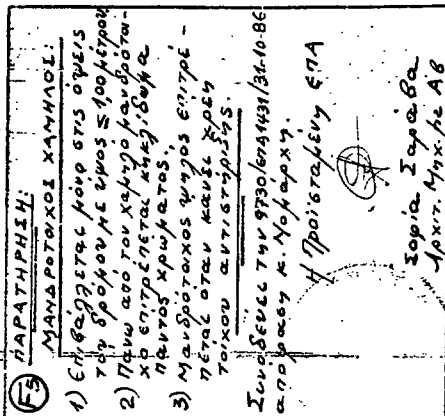 F5 ΠΑΡΑΤΗΡΗΣΗ:
ΜΑΝΔΡΟΤΟΙΧΟΣ ΧΑΜΗΛΟΣ:
1) Επιβάλλεται μόνο στις όψεις
του δρόμου με ύψος ≤ 1,00 μέτρου
2) Πάνω από τον χαμηλό μανδρότοι-
χο επιτρέπεται κιγκλίδωμα
παντός χρώματος.
3) Μανδρότοιχος ψηλός επιτρέ-
πεται όταν κάνει χρέη
τοίχου αντιστήριξης.
Συνοδεύει την 9730/ΕΠΑ1431/31-10-86
απόφαση κ. Νομάρχη.
Η Προϊσταμένη ΕΠΑ
Σοφία Σαράβα
Αρχιτ. Μηχ. με Α΄β